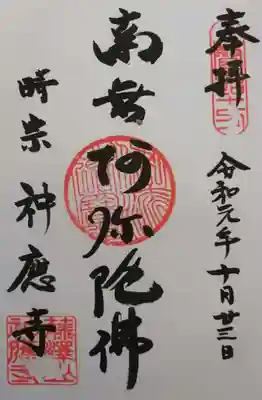 奉拝
令和元年十月廿三日
南無阿弥陀佛
時宗 神應寺